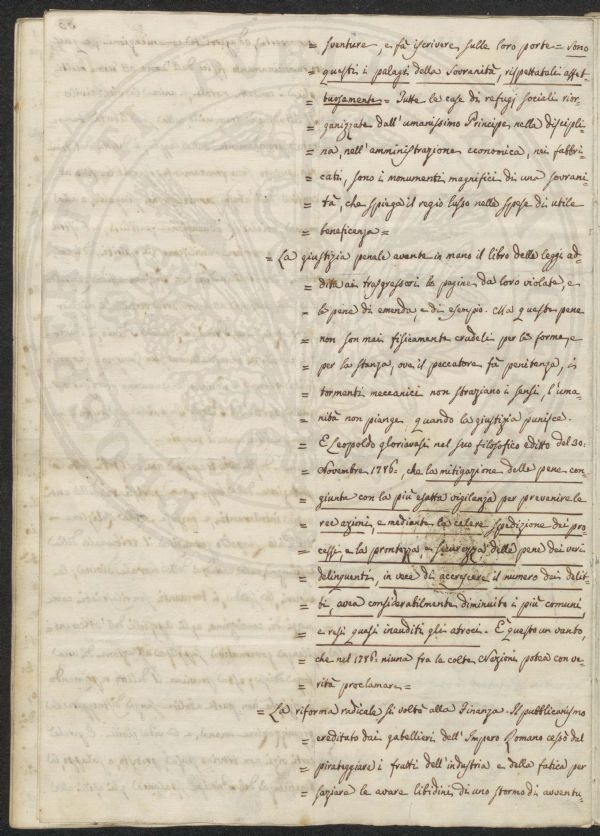 = sventure, e fà iscrivere sulle loro porte = sono
= questi i palagi della Sovranità, rispettateli affet-
= tuosamente = Tutte le case di refugj sociali rior-
= ganizzate dall'umanissimo Principe nella discipli-
= na, nell'amministrazione economica, nei fabbri-
= cati, sono i monumenti magnifici di una sovrani-
= tà, che spiega il regio lusso nelle spese di utile
= beneficenza =
= La giustizia penale avente in mano il libro delle leggi ad-
= dita ai trasgressori le pagine da loro violate, e
= le pene di emenda, e di esempio. Ma queste pene
= non son mai fisicamente crudeli per le forme, e
= per la stanza, ove il peccatore fà penitenza, i
= tormenti meccanici non straziano i sensi, l'uma-
= nità non piange quando la giustizia punisce.
= E Leopoldo gloriavasi nel suo filosofico editto del 30:
= Novembre 1786:, che la mitigazione delle pene con-
= giunta con la più esatta vigilanza per prevenire le
= ree azioni, e mediante la celere spedizione dei pro-
= cessi, e la prontezza, e sicurezza delle pene dei veri
= delinquenti, in vece di accrescere il numero dei delit-
= ti, avea considerabilmente diminuito i più comuni,
= e resi quasi inauditi gli atroci. E questo un vanto,
= che nel 1786: niuna fra le colte Nazioni potea con ve-
= rità proclamare =
= La riforma radicale si voltò alla Finanza. Il pubblicanismo
= ereditato dai gabellieri dell'Impero Romano cessò dal
= pirateggiare i frutti dell'industria e della fatica per
= saziare le avare libidini di uno stormo di avventu-